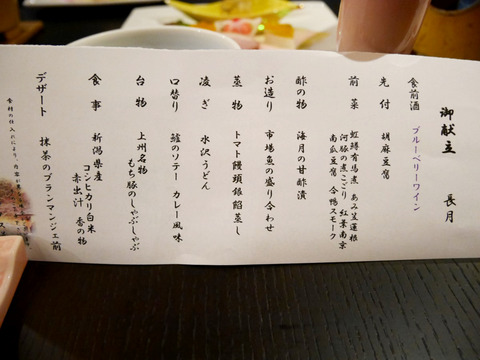 御献立 長月
食前酒 ブルーベリーワイン
先付 胡麻豆腐
前菜 虹鱒有馬煮 あみ笠蓮根
河豚の煮こごり 紅葉南京
南瓜豆腐 合鴨スモーク
酢の物 海月の甘酢漬
お造り 市場魚の盛り合わせ
蒸物 トマト饅頭銀餡蒸し
凌ぎ 水沢うどん
口替り 鱧のソテー カレー風味
台物 上州名物
もち豚のしゃぶしゃぶ
食事 新潟県産
コシヒカリ白米
赤出汁 香の物
デザート 抹茶のブランマンジェ
食材の仕入れにより、内容が